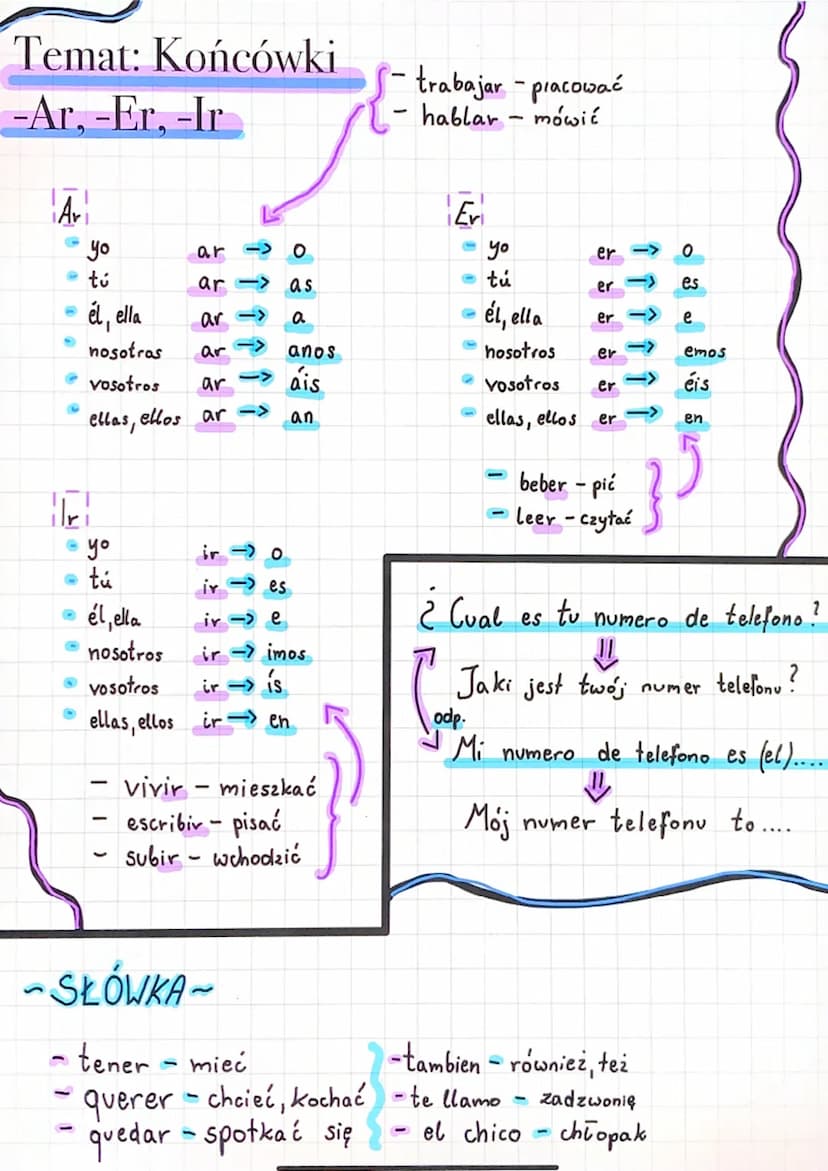 Temat: Końcówki
-Ar, -Er, -Ir
- trabajar - pracować
- hablar - mówić
Ar
yo ar → o
tú ar → as
él, ella ar → a
nosotros ar → anos
vosotros ar → áis
ellas, ellos ar → an
Er
yo er → o
tú er → es
él, ella er → e
nosotros er → emos
vosotros er → éis
ellas, ellos er → en
- beber - pić
- leer - czytać
Ir
yo ir → o
tú ir → es
él, ella ir → e
nosotros ir → imos
vosotros ir → ís
ellas, ellos ir → en
- vivir - mieszkać
- escribir - pisać
- subir - wchodzić
¿ Cual es tu numero de telefono?
Jaki jest twój numer telefonu?
odp.
Mi numero de telefono es (el)....
Mój numer telefonu to....
~SŁÓWKA~
- tener - mieć
- querer - chcieć, kochać
- quedar - spotkać się
- tambien - również, też
- te llamo - zadzwonię
- el chico - chłopak